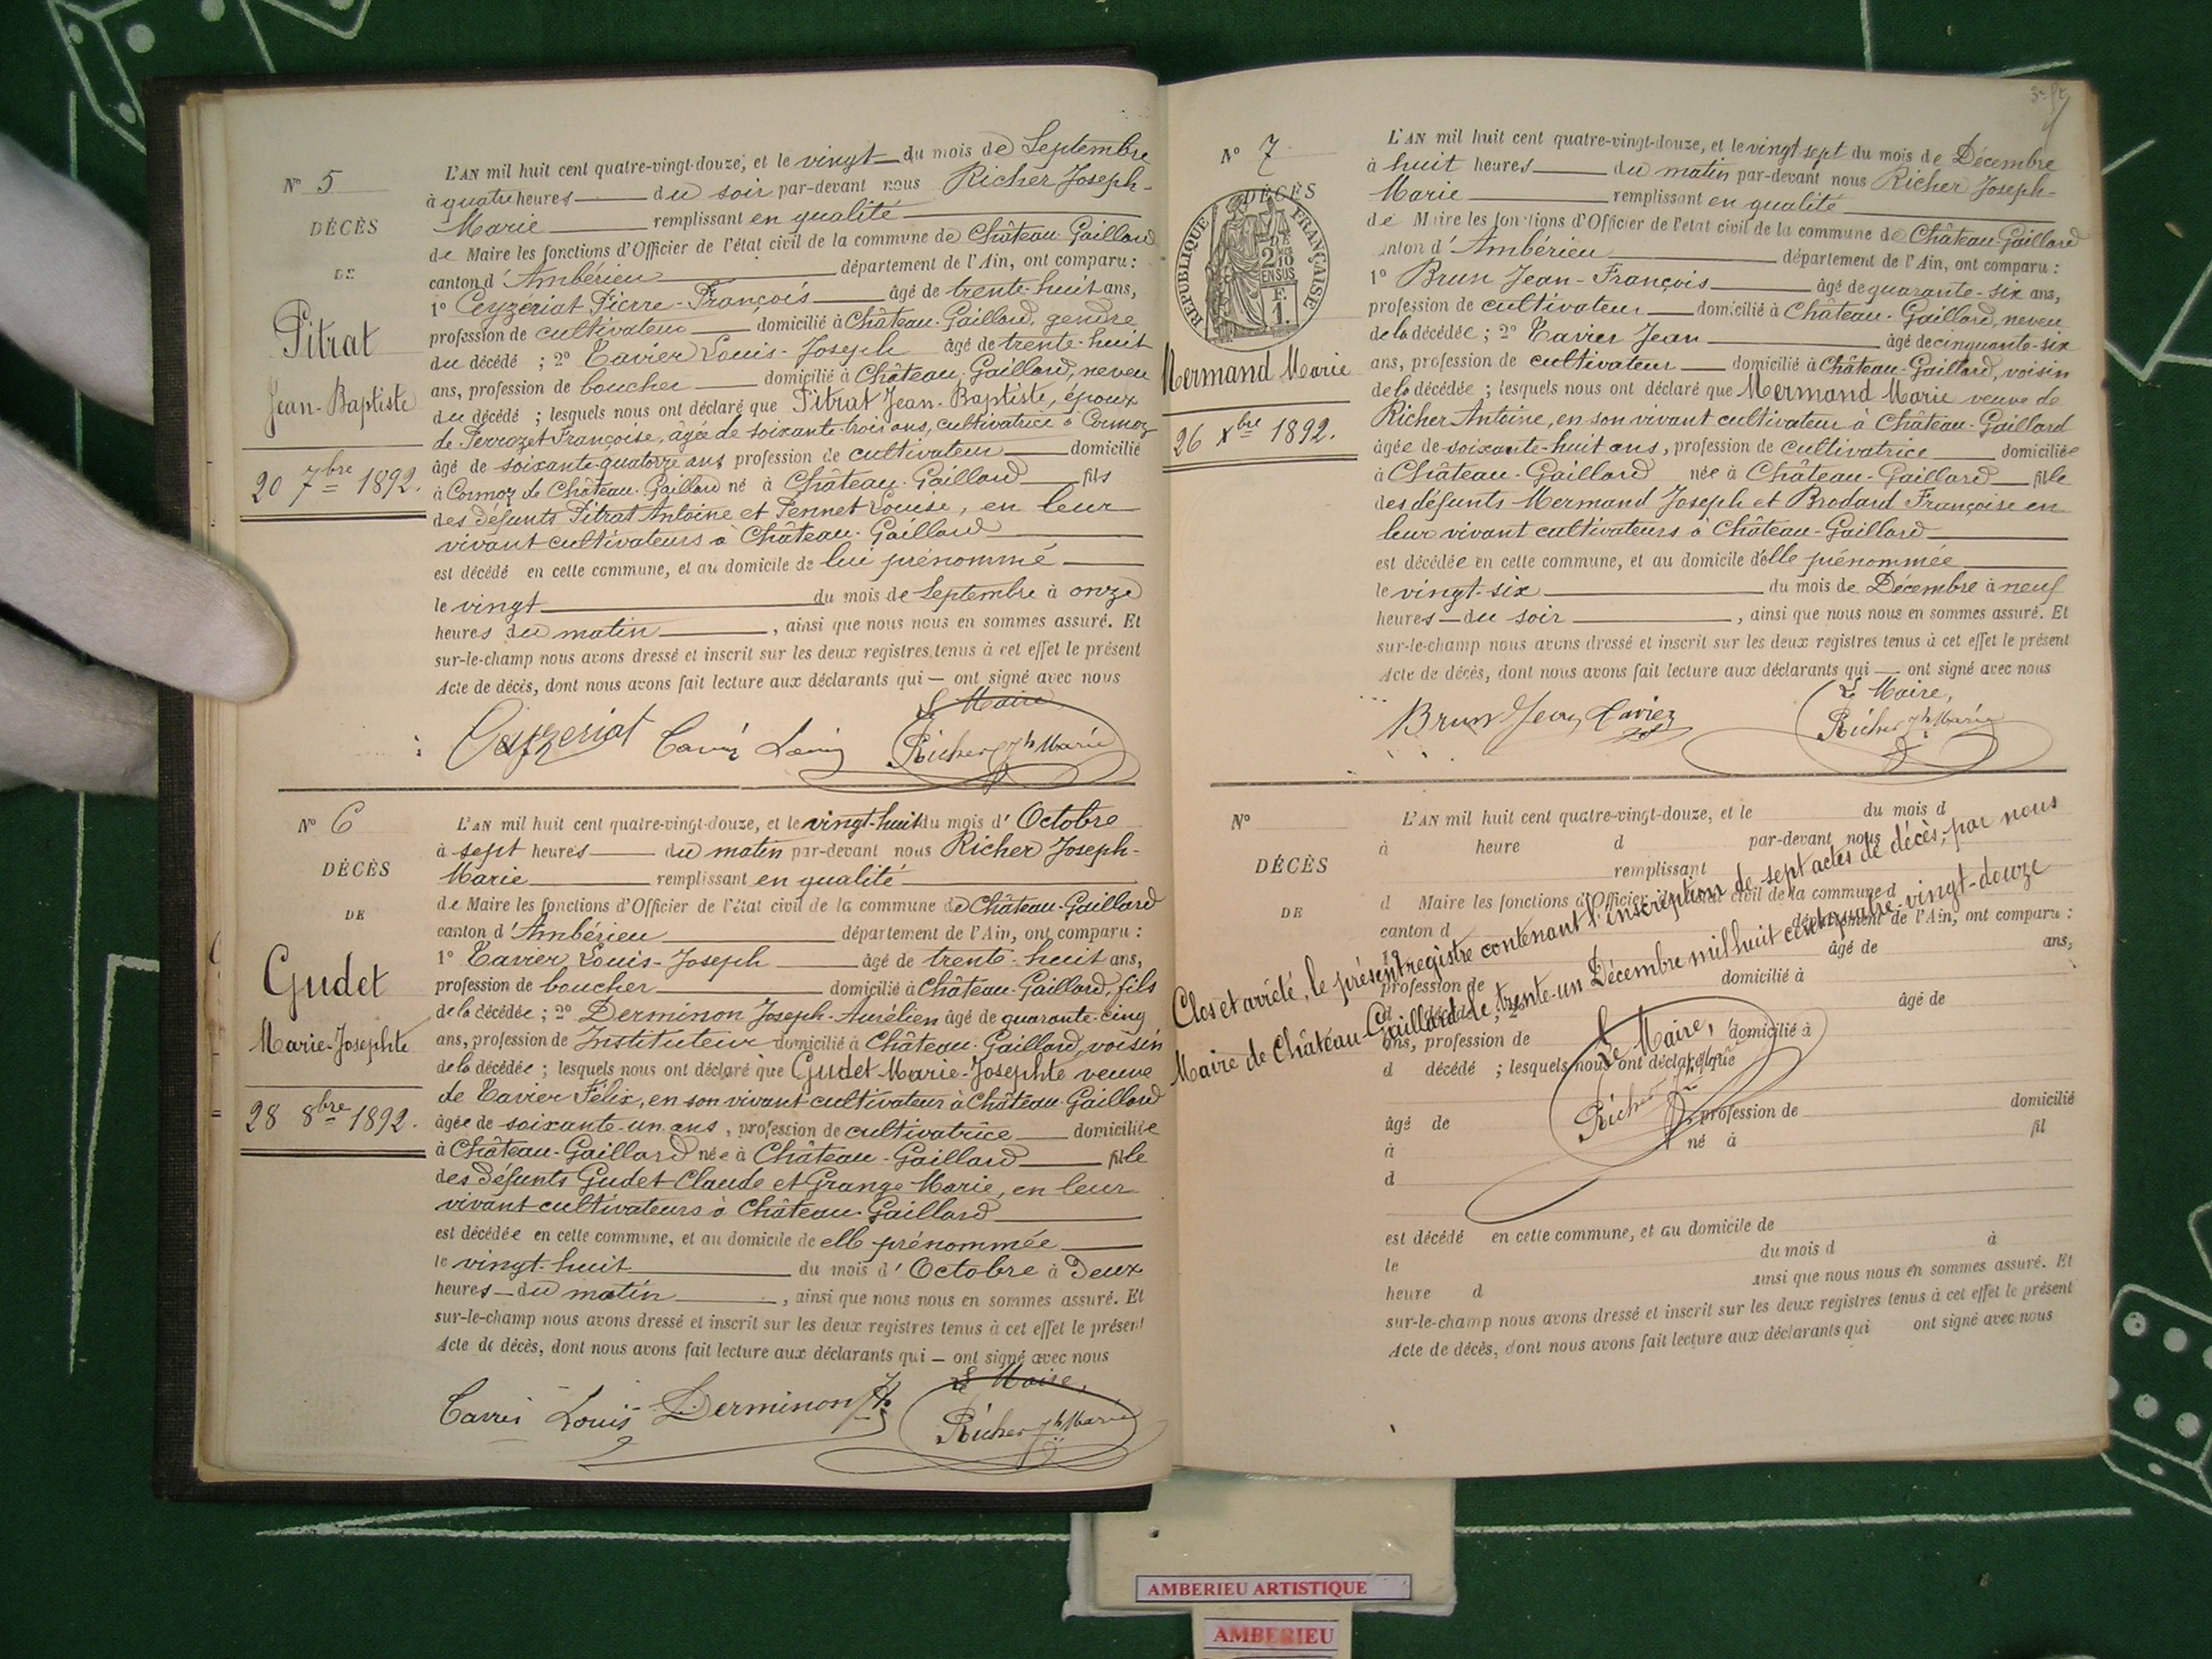 N° 5
DÉCÈS
DE
Pitrat
Jean-Baptiste
20 7bre 1892.
L'AN mil huit cent quatre-vingt-douze, et le vingt du mois de Septembre
à quatre heures du soir par-devant nous Richer Joseph-
Marie remplissant en qualité
de Maire les fonctions d'Officier de l'état civil de la commune de Château-Gaillard
canton d'Ambérieu département de l'Ain, ont comparu :
1° Ceyzériat Pierre-François âgé de trente-huit ans,
profession de cultivateur domicilié à Château-Gaillard, gendre
du décédé ; 2° Tavier Louis-Joseph âgé de trente-huit
ans, profession de boucher domicilié à Château-Gaillard, neveu
du décédé ; lesquels nous ont déclaré que Pitrat Jean-Baptiste, époux
de Perrozet Françoise, âgée de soixante-trois ans, cultivatrice à Cormoz
âgé de soixante-quatorze ans profession de cultivateur domicilié
à Cormoz de Château-Gaillard né à Château-Gaillard fils
des défunts Pitrat Antoine et Pennet Louise, en leur
vivant cultivateurs à Château-Gaillard
est décédé en cette commune, et au domicile de lui prénommé
le vingt du mois de Septembre à onze
heures du matin, ainsi que nous nous en sommes assuré. Et
sur-le-champ nous avons dressé et inscrit sur les deux registres tenus à cet effet le présent
Acte de décès, dont nous avons fait lecture aux déclarants qui — ont signé avec nous
Le Maire
Ceyzeriat Tavié Louis Richer Jh Marie
N° 6
DÉCÈS
DE
Gudet
Marie-Josephte
28 8bre 1892.
L'AN mil huit cent quatre-vingt-douze, et le vingt-huit du mois d'Octobre
à sept heures du matin par-devant nous Richer Joseph-
Marie remplissant en qualité
de Maire les fonctions d'Officier de l'état civil de la commune de Château-Gaillard
canton d'Ambérieu département de l'Ain, ont comparu :
1° Tavier Louis-Joseph âgé de trente-huit ans,
profession de boucher domicilié à Château-Gaillard, fils
de la décédée ; 2° Derminon Joseph-Aurélien âgé de quarante-cinq
ans, profession de Instituteur domicilié à Château-Gaillard, voisin
de la décédée ; lesquels nous ont déclaré que Gudet Marie-Josephte veuve
de Tavier Félix, en son vivant cultivateur à Château-Gaillard
âgée de soixante-un ans, profession de cultivatrice domiciliée
à Château-Gaillard née à Château-Gaillard fille
des défunts Gudet Claude et Grange Marie, en leur
vivant cultivateurs à Château-Gaillard
est décédée en cette commune, et au domicile de elle prénommée
le vingt-huit du mois d'Octobre à Deux
heures du matin, ainsi que nous nous en sommes assuré. Et
sur-le-champ nous avons dressé et inscrit sur les deux registres tenus à cet effet le présent
Acte de décès, dont nous avons fait lecture aux déclarants qui — ont signé avec nous
Le Maire,
Tavié Louis Derminon Richer Jh Marie
N° 7
DÉCÈS
RÉPUBLIQUE FRANÇAISE
2/10 EN SUS
F. 1.
Mermand Marie
26 xbre 1892.
L'AN mil huit cent quatre-vingt-douze, et le vingt-sept du mois de Décembre
à huit heures du matin par-devant nous Richer Joseph-
Marie remplissant en qualité
de Maire les fonctions d'Officier de l'état civil de la commune de Château-Gaillard
canton d'Ambérieu département de l'Ain, ont comparu :
1° Brun Jean-François âgé de quarante-six ans,
profession de cultivateur domicilié à Château-Gaillard, neveu
de la décédée ; 2° Tavier Jean âgé de cinquante-six
ans, profession de cultivateur domicilié à Château-Gaillard, voisin
de la décédée ; lesquels nous ont déclaré que Mermand Marie veuve de
Richer Antoine, en son vivant cultivateur à Château-Gaillard
âgée de soixante-huit ans, profession de cultivatrice domiciliée
à Château-Gaillard née à Château-Gaillard fille
des défunts Mermand Joseph et Brodard Françoise en
leur vivant cultivateurs à Château-Gaillard
est décédée en cette commune, et au domicile d'elle prénommée
le vingt-six du mois de Décembre à neuf
heures du soir, ainsi que nous nous en sommes assuré. Et
sur-le-champ nous avons dressé et inscrit sur les deux registres tenus à cet effet le présent
Acte de décès, dont nous avons fait lecture aux déclarants qui — ont signé avec nous
Le Maire,
Brun Jean Tavier Richer Jh Marie
N°
DÉCÈS
DE
L'AN mil huit cent quatre-vingt-douze, et le du mois d
à heure d par-devant nous
remplissant
d Maire les fonctions d'Officier de l'état civil de la commune d
canton d département de l'Ain, ont comparu :
1° âgé de ans,
profession de domicilié à
d décédé ; 2° âgé de
ans, profession de domicilié à
d décédé ; lesquels nous ont déclaré que
âgé de profession de domicilié
à né à fil
d
est décédé en cette commune, et au domicile de
le du mois d à
heure d ainsi que nous nous en sommes assuré. Et
sur-le-champ nous avons dressé et inscrit sur les deux registres tenus à cet effet le présent
Acte de décès, dont nous avons fait lecture aux déclarants qui ont signé avec nous
Clos et arrêté, le présent registre contenant l'inscription de sept actes de décès, par nous
Maire de Château-Gaillard le trente-un Décembre mil huit cent quatre-vingt-douze
Le Maire,
Richer Jh Marie
AMBERIEU ARTISTIQUE
AMBERIEU